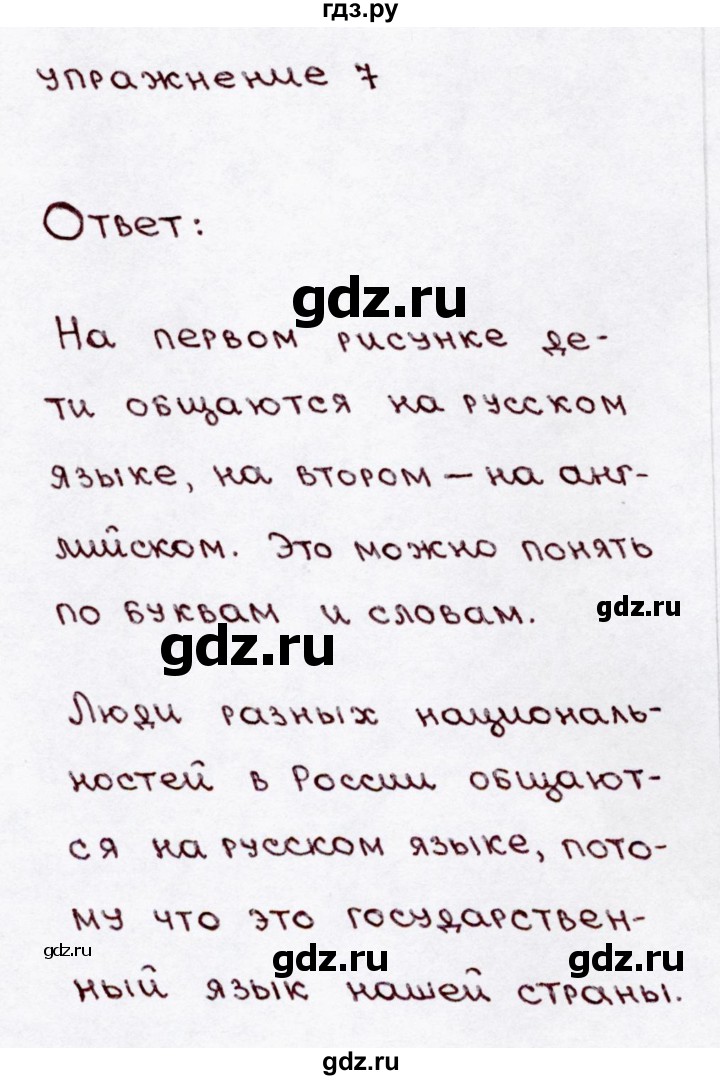 гдз.ру
упражнение 7
Ответ:
gdz.ru
На первом рисунке де-
ти общаются на русском
языке, на втором – на анг-
лийском. Это можно понять
по буквам и словам.
gdz.ru
gdz.ru
Люди разных националь-
ностей в России общают-
ся на русском языке, пото-
му что это государствен-
gdz.ru
gdz.ru
gdz.ru
ный язык нашей страны.
gdz.ru